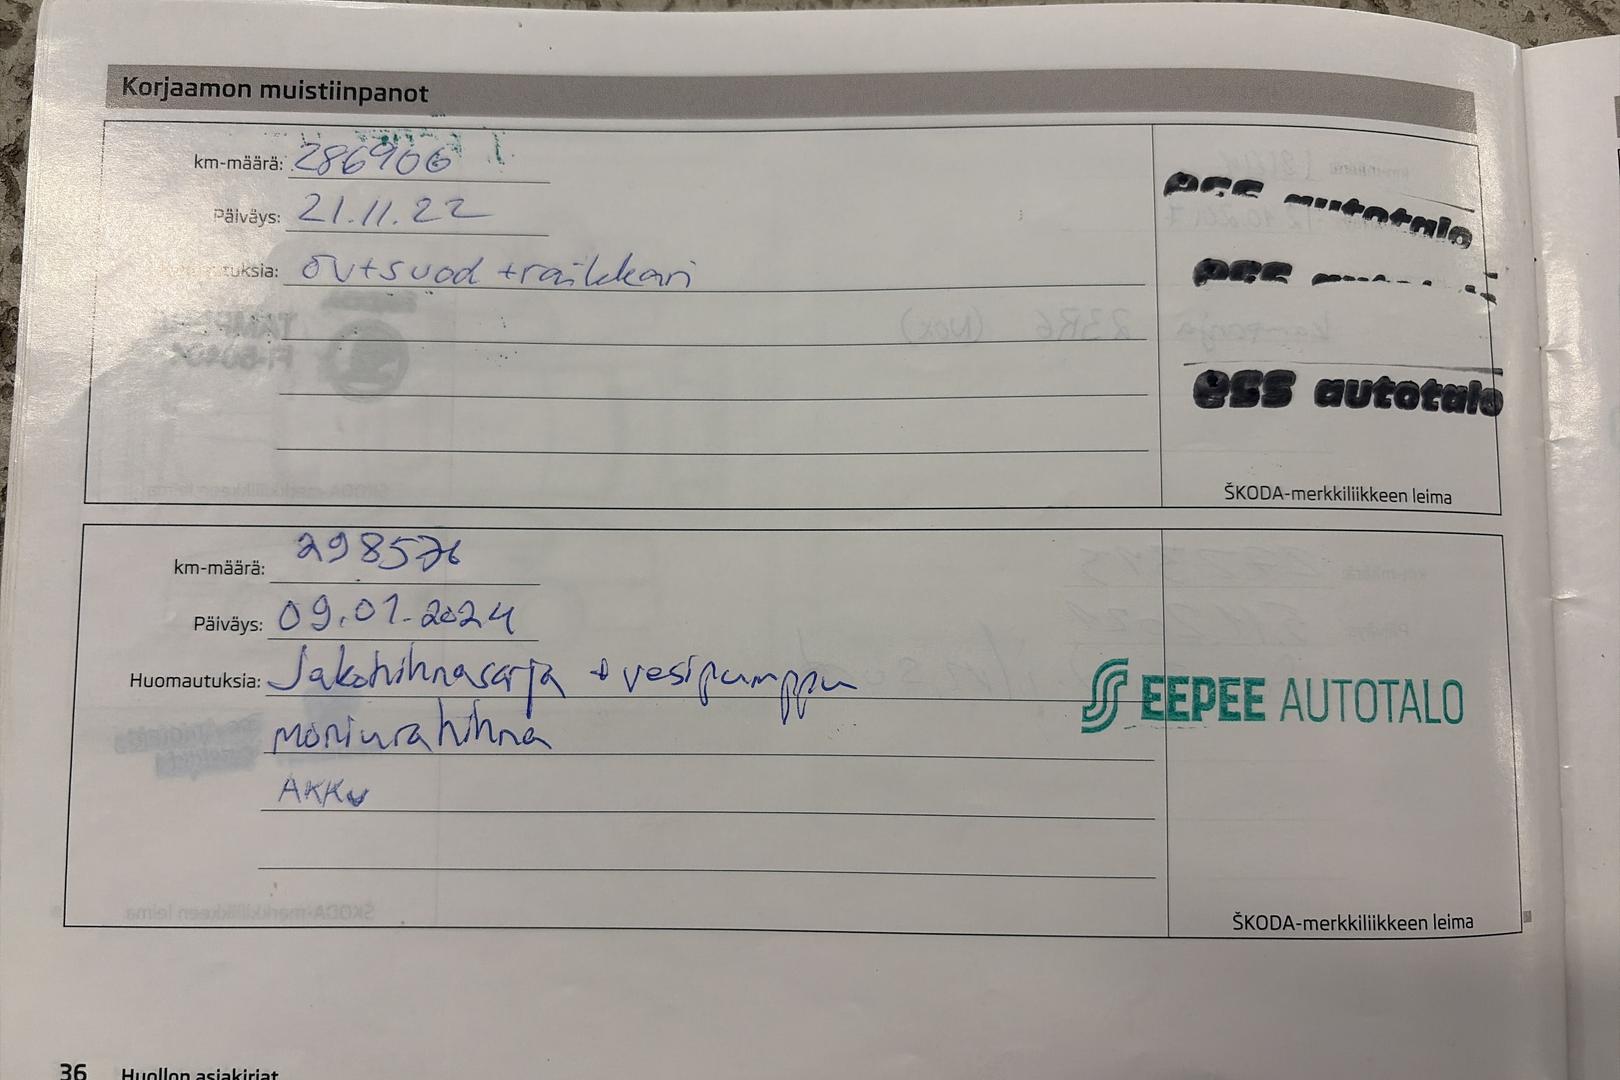 Korjaamon muistiinpanot
km-määrä: 286906
Päiväys: 21.11.22
tuksia: öv+suod +raikkari
ess autotalo
ess
ess autotalo
ŠKODA-merkkiliikkeen leima
km-määrä: 298576
Päiväys: 09.01.2024
Huomautuksia: Jakohihnasarja + vesipumppu
moniurahihna
AKKU
EEPEE AUTOTALO
ŠKODA-merkkiliikkeen leima
36 Huollon asiakirjat